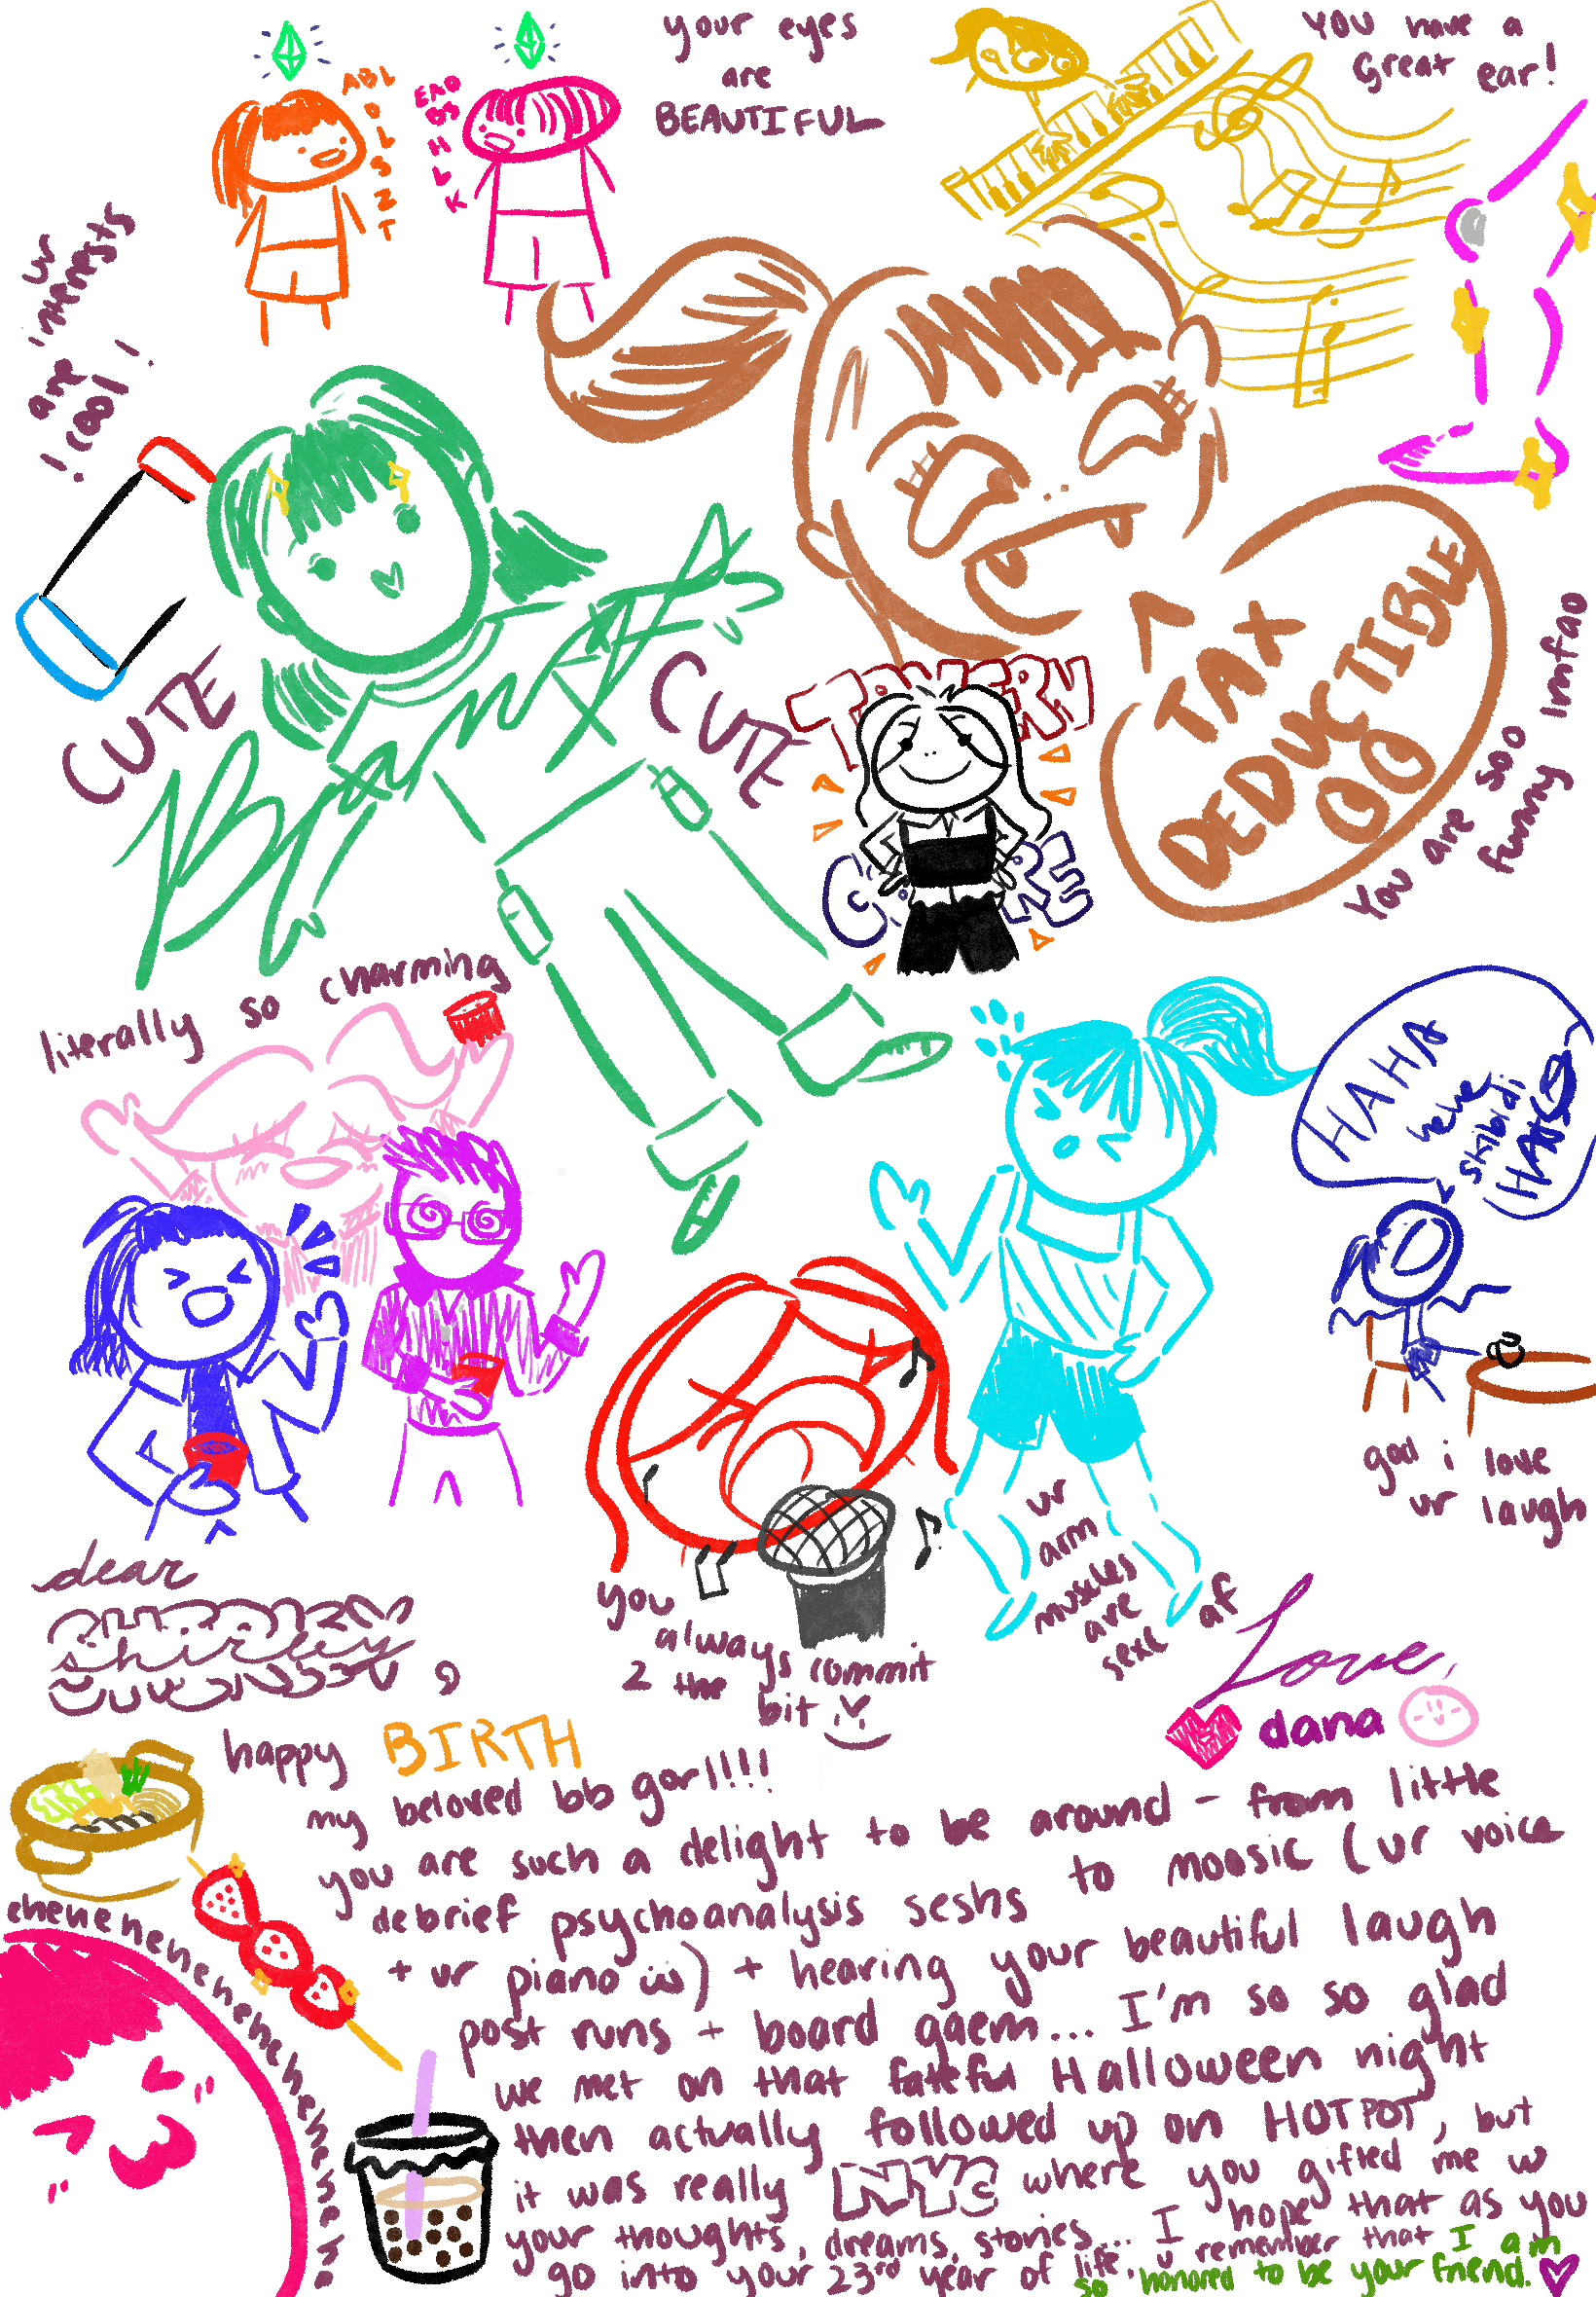 your eyes
are
BEAUTIFUL
YOU have a
Great ear!
ABL
O
L
S
Z
T
ur
interests
are
! cool !
CUTE
CUTE
TAX
DEDUCTIBLE
You are soo
funny lmfao
literally so charming
HAHA
hehe
skibidi
god i love
ur laugh
ur
arm
muscles
are
sexc af
you
always commit
2 the bit
dear
shirley,
Love,
dana
happy BIRTH
my beloved bb gorl!!!
you are such a delight to be around - from little
debrief psychoanalysis seshs to moosic (ur voice
+ ur piano ü) + hearing your beautiful laugh
post runs + board gaem... I'm so so glad
we met on that fateful Halloween night
then actually followed up on HOTPOT, but
it was really NYC where you gifted me w
your thoughts, dreams, stories... I hope that as you
go into your 23rd year of life, u remember that I am
so honored to be your friend.
ehehehehehehehehehehehehehe